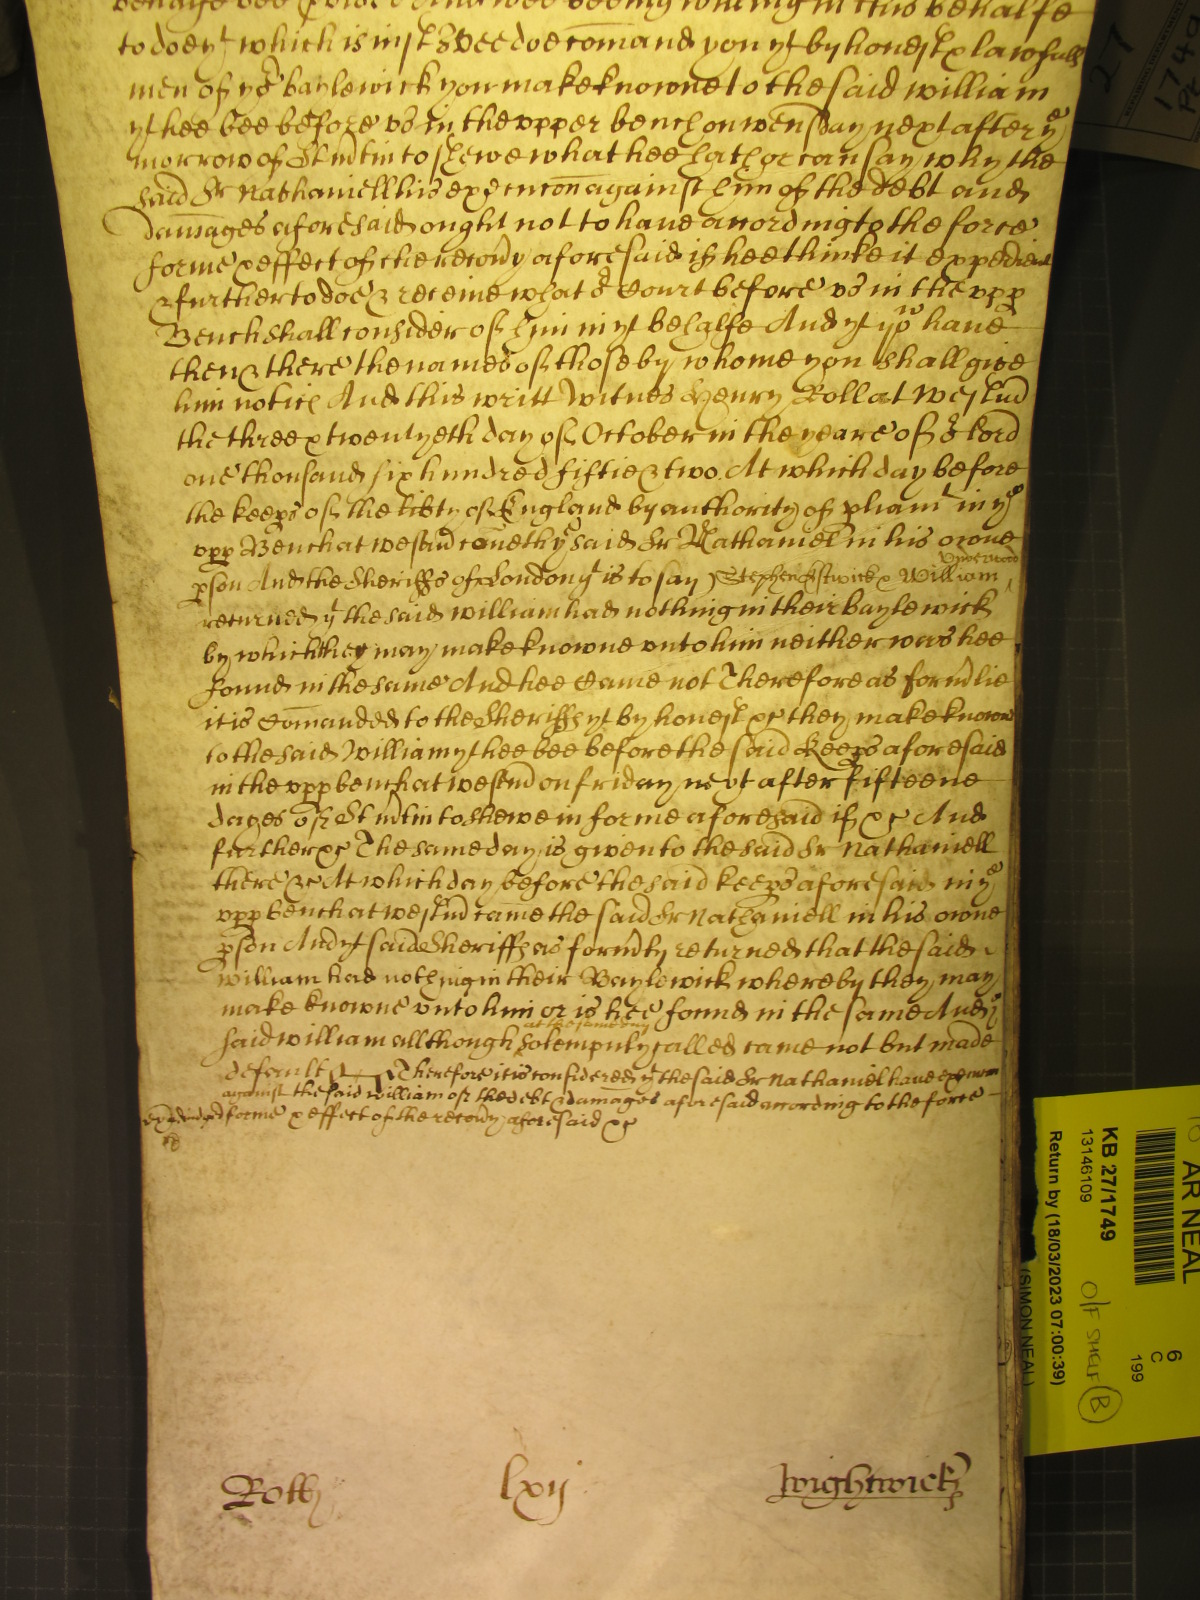 behalfe bee wee beeing willing in this behalfe
to doe yt which is iust Wee doe comand you yt by honest & lawfull
men of yor baylewick you make knowne to the said william
yt hee bee before vs in the vpper bench on wensday next after ye
morrow of St Mtin to shewe what hee hath or can say why the
said Sr Nathaniell his execucon against him of the debt and
damages aforesaid ought not to haue according to the force
forme & effect of the recoùy aforesaid if hee thinke it expedient
& further to doe & receiue what or Court before vs in the vpp
Bench shall consider of him in yt behalfe And yt yow haue
then & there the names of those by whome you shall giue
him notice And this writt Witnes Henry Roll at Westmd
the three & twentyeth day of October in the yeare of or lord
one thousand six hundred fiftie & two. At which day before
the keeps of the libty of England by authority of pliamt in ye
vpp Bench at westmd cometh ye said Sr Nathaniell in his owne
pson And the Sheriffs of London yt is to say Stephen Estwick & William Underwood
returned yt the said william had nothing in their baylewick
by which they may make knowne vnto him neither was hee
found in the same And hee came not Therefore as formlie
it is comanded to the Sheriffs yt by honest &c they make knowne
to the said William yt hee bee before the said Keeps aforesaid
in the vpp bench at westmd on friday next after fifteene
dayes of St Mtin to shewe in forme aforesaid if &c And
further &c The same day is giuen to the said Sr Nathaniell
there &c At which day before the said keeps aforesaid in ye
vpp bench at westmd came the said Sr Nathaniell in his owne
pson And yt said Sheriffs as formly returned that the said
William had nothing in their Baylewick whereby they may
make knowne vnto him or is hee found in the same And ye
said william allthough at the same day solempnly called came not but made
default Therefore it is considered yt the said Sr Nathaniel haue execucon
against the said William of the debt & damages aforesaid according to the force
forme & effect of the recoùy aforesaid &c
Rolls lxij Wightwick
KB 27/1749
13146109
Return by (18/03/2023 07:00:39)
O/F SHELF B
AR NEAL
(SIMON NEAL)
6
C
199
27
1749